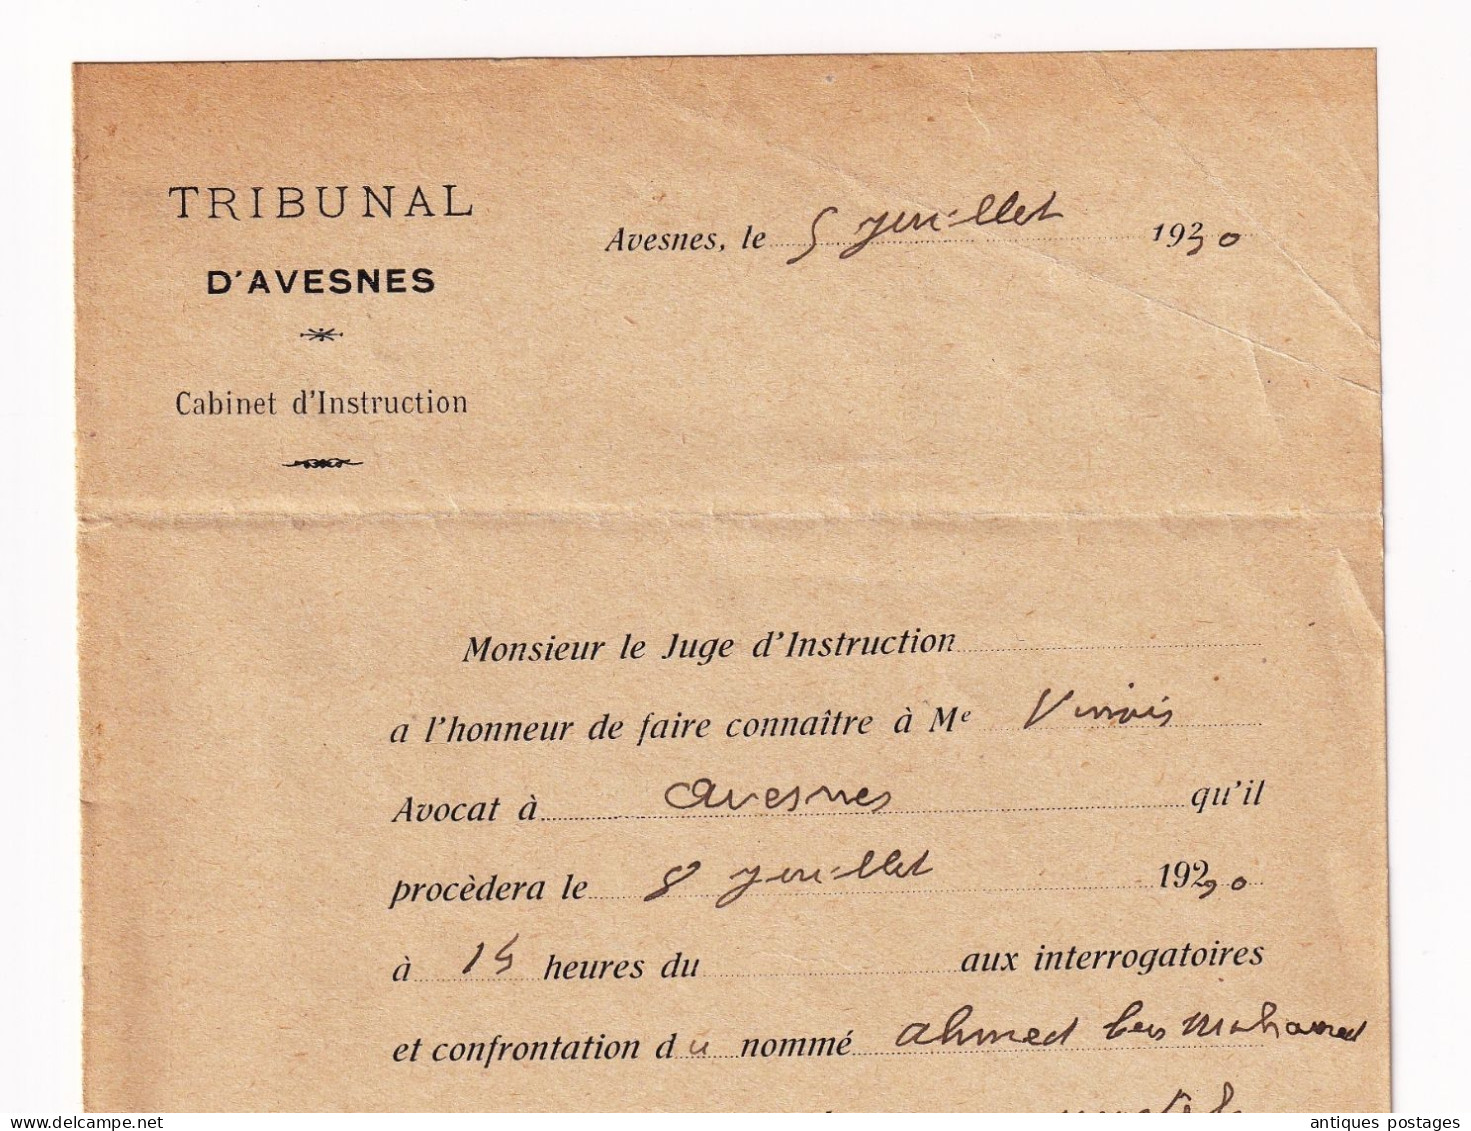 TRIBUNAL
D'AVESNES
Cabinet d'Instruction
Avesnes, le 5 juillet 1930
Monsieur le Juge d'Instruction
a l'honneur de faire connaître à Me
Avocat à avesnes qu'il
procèdera le 8 juillet 1930
à 15 heures du aux interrogatoires
et confrontation du nommé ahmed ben Mohamed
www.delcampe.net
antiques postages